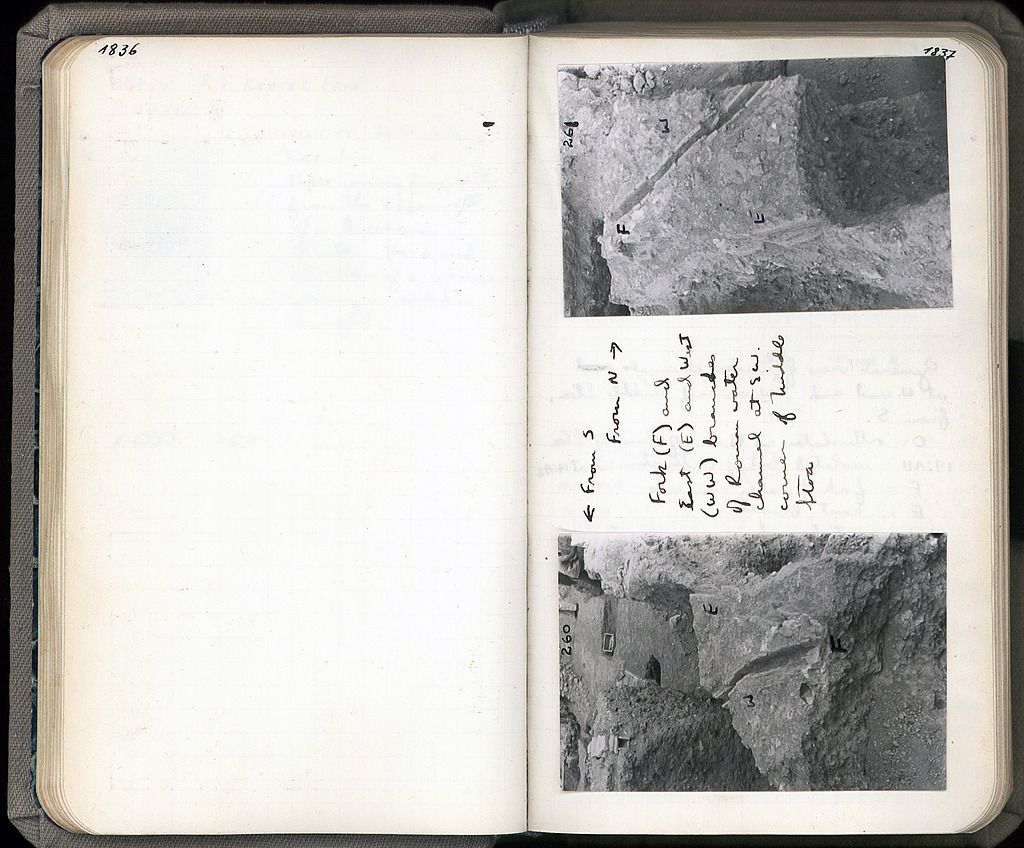 1836
1837
261
W
E
F
← From S
From N →
Fork (F) and
East (E) and West
(WW) branches
of Roman water
channel at S.W.
corner of Middle
Stoa
260
E
W
F